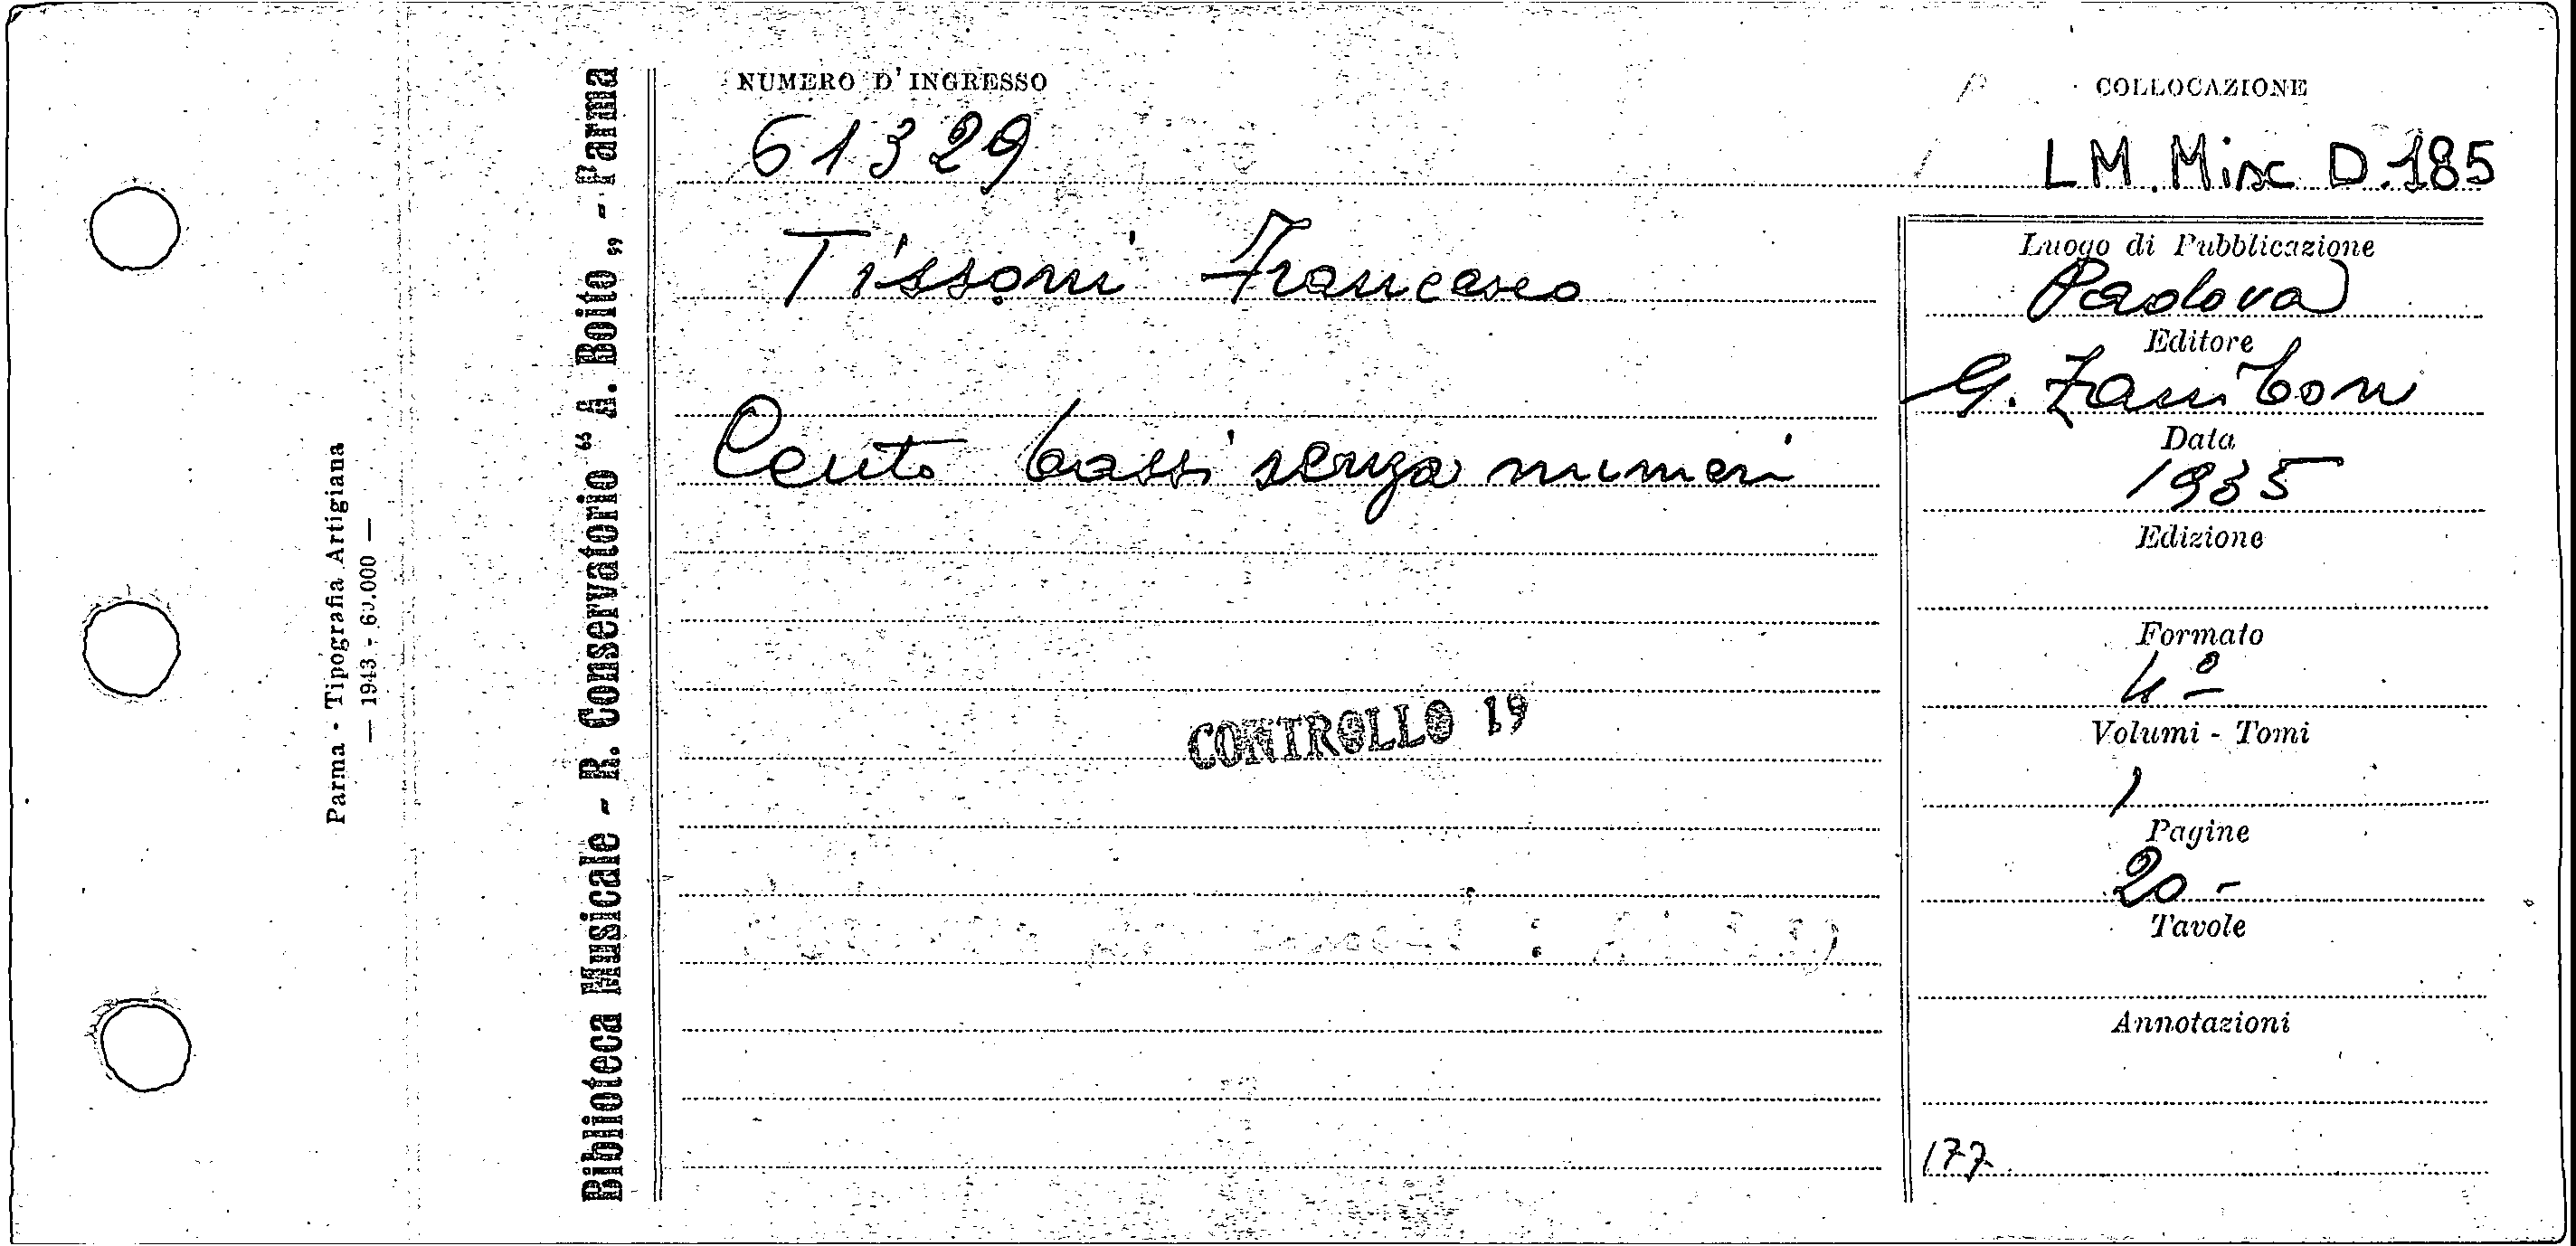 Parma - Tipografia Artigiana
— 1943 - 60.000 —
Biblioteca Musicale - R. Conservatorio “ A. Boito „ - Parma
NUMERO D'INGRESSO
61329
Tissoni Francesco
Cento bassi senza numeri
CONTROLLO 19
COLLOCAZIONE
LM. Misc D.185
Luogo di Pubblicazione
Padova
Editore
G. Zanibon
Data
1935
Edizione
Formato
4º
Volumi - Tomi
1
Pagine
20 -
Tavole
Annotazioni
177